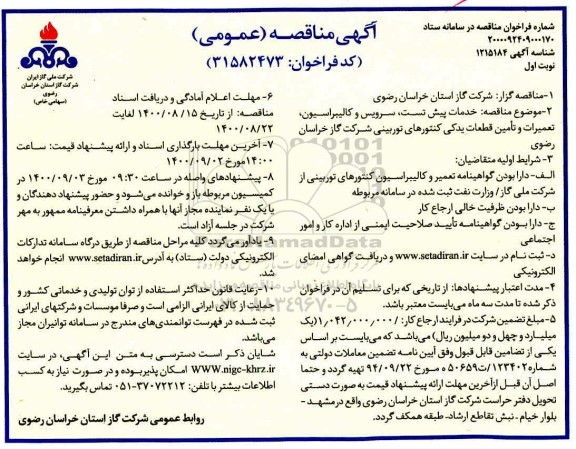 شماره فراخوان مناقصه در سامانه ستاد
۲۰۰۰۰۹۲۴۰۹۰۰۰۱۷۰
شناسه آگهی ۱۲۱۵۱۸۴
نوبت اول
آگهی مناقصه (عمومی)
(کد فراخوان: ۳۱۵۸۲۴۷۳)
شرکت ملی گاز ایران
شرکت گاز استان خراسان رضوی
(سهامی خاص)
۱-مناقصه گزار: شرکت گاز استان خراسان رضوی
۲-موضوع مناقصه: خدمات پیش تست، سرویس و کالیبراسیون،
تعمیرات و تأمین قطعات یدکی کنتورهای توربینی شرکت گاز خراسان
رضوی
۳- شرایط اولیه متقاضیان:
الف- دارا بودن گواهینامه تعمیر و کالیبراسیون کنتورهای توربینی از
شرکت ملی گاز/ وزارت نفت ثبت شده در سامانه مربوطه
ب- دارا بودن ظرفیت خالی ارجاع کار
ج- دارا بودن گواهینامه تأیید صلاحیت ایمنی از اداره کار و امور
اجتماعی
د- ثبت نام در سایت www.setadiran.ir و دریافت گواهی امضای
الکترونیکی
۴- مدت اعتبار پیشنهادها: از تاریخی که برای تسلیم آن در فراخوان
ذکر شده تا مدت سه ماه می‌بایست معتبر باشد.
۵-مبلغ تضمین شرکت در فرایند ارجاع کار: /۱,۰۴۲,۰۰۰,۰۰۰(یک
میلیارد و چهل و دو میلیون ریال) می‌باشد که می‌بایست بر اساس
یکی از تضامین قابل قبول وفق آیین نامه تضمین معاملات دولتی به
شماره ۱۲۳۴۰۲/ت۵۰۶۵۹ ه مورخ ۹۴/۰۹/۲۲ تهیه گردد و حتما
اصل آن قبل از آخرین مهلت ارائه پیشنهاد قیمت به صورت دستی
تحویل دفتر حراست شرکت گاز استان خراسان رضوی واقع در مشهد-
بلوار خیام- نبش تقاطع ارشاد- طبقه همکف گردد.
۶- مهلت اعلام آمادگی و دریافت اسناد
مناقصه: از تاریخ ۱۴۰۰/۰۸/۱۵ لغایت
۱۴۰۰/۰۸/۲۲
۷- آخرین مهلت بارگذاری اسناد و ارائه پیشنهاد قیمت: ساعت
۱۴:۰۰ مورخ ۱۴۰۰/۰۹/۰۲
۸- پیشنهادهای واصله در ساعت ۰۹:۳۰ مورخ ۱۴۰۰/۰۹/۰۳ در
کمیسیون مربوطه باز و خوانده می‌شود و حضور پیشنهاد دهندگان و
یا یک نفر نماینده مجاز آنها با همراه داشتن معرفینامه ممهور به مهر
شرکت در جلسه آزاد است.
۹- یادآور می‌گردد کلیه مراحل مناقصه از طریق درگاه سامانه تدارکات
الکترونیکی دولت (ستاد) به آدرس www.setadiran.ir انجام خواهد
شد.
۱۰-رعایت قانون حداکثر استفاده از توان تولیدی و خدماتی کشور و
حمایت از کالای ایرانی الزامی است و صرفا موسسات و شرکتهای ایرانی
ثبت شده در فهرست توانمندی‌های مندرج در سامانه توانیران مجاز
می‌باشد.
شایان ذکر است دسترسی به متن این آگهی، در سایت
www.nigc-khrz.ir امکان پذیر بوده و در صورت نیاز به کسب
اطلاعات بیشتر با تلفن: ۳۷۰۷۲۲۱۲-۰۵۱ تماس بگیرید.
روابط عمومی شرکت گاز استان خراسان رضوی